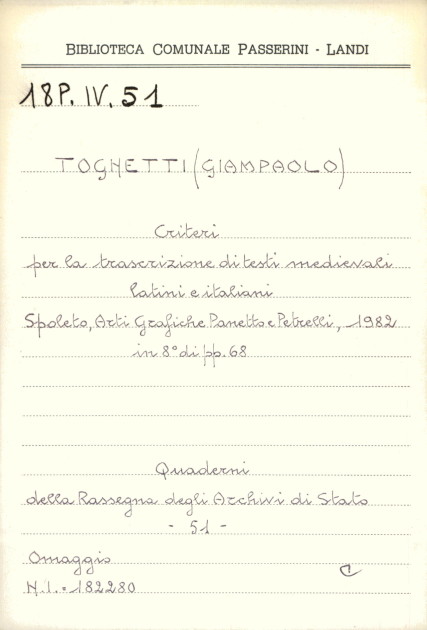 BIBLIOTECA COMUNALE PASSERINI - LANDI
18P. IV. 51
TOGHETTI (GIAMPAOLO)
Criteri
per la trascrizione di testi medievali
latini e italiani
Spoleto, Arti Grafiche Panetto e Petrelli, 1982
in 8° di pp. 68
Quaderni
della Rassegna degli Archivi di Stato
- 51 -
Omaggio
N.I. = 182280
C